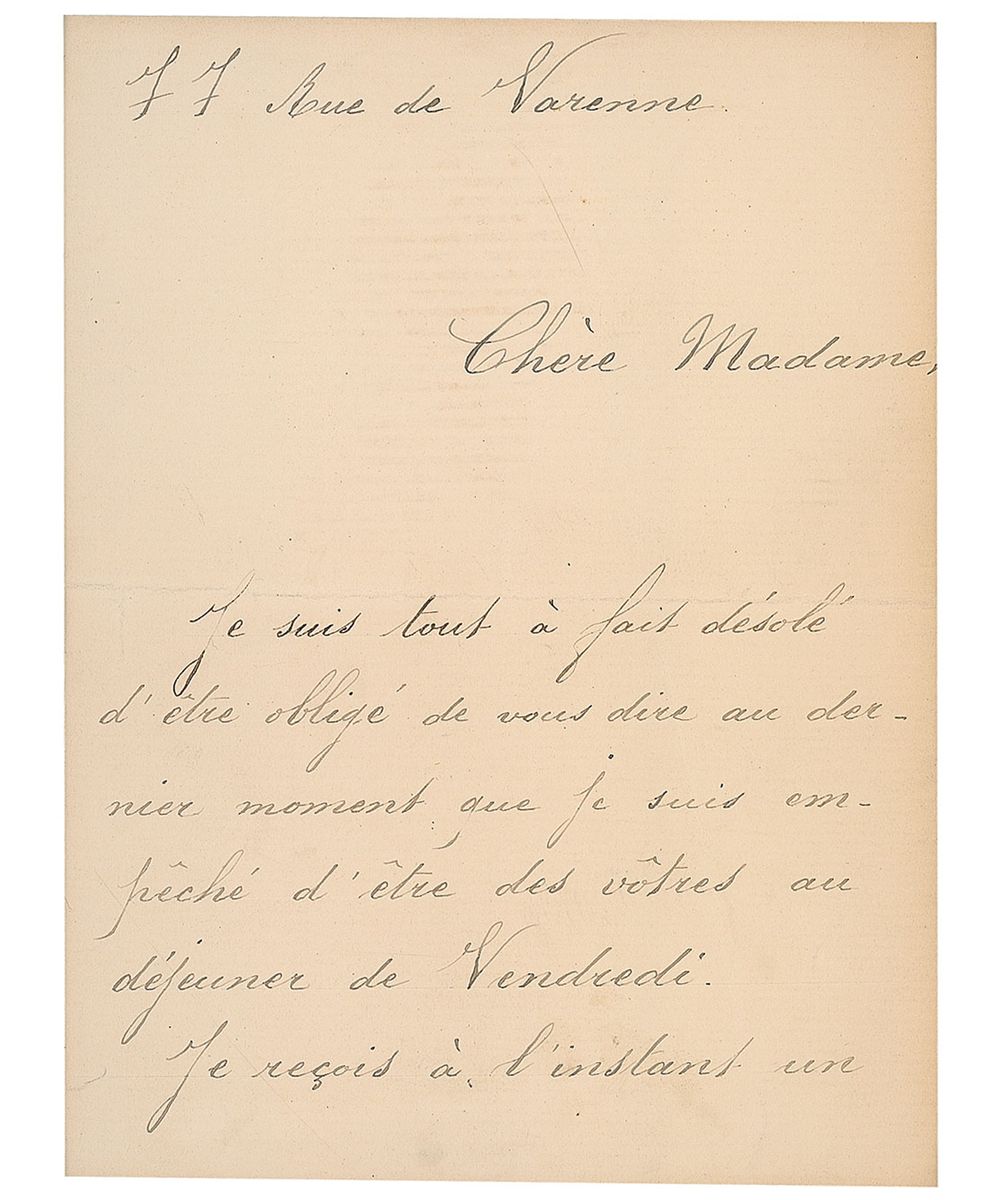 77 Rue de Varenne.
Chère Madame,
Je suis tout à fait désolé
d'être obligé de vous dire au der-
nier moment que je suis em-
pêché d'être des vôtres au
déjeuner de Vendredi.
Je reçois à l'instant un